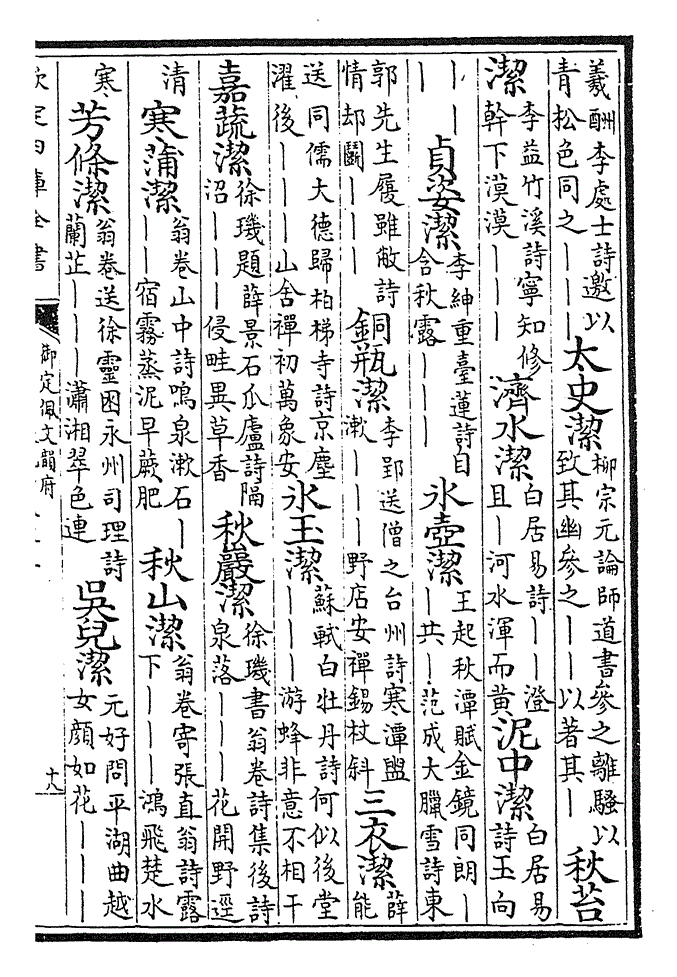 羲酬李處士詩邀以
青松色同之一一一
太史潔
柳宗元論師道書參之離騷以
致其幽參之一一以著其一
秋苔
潔
李益竹溪詩寧知修
幹下漠漠一一一
濟水潔
白居易詩一一澄
且一河水渾而黃
泥中潔
白居易
詩玉向
一一
一一
貞姿潔
李紳重臺蓮詩自
含秋露一一一
氷壺潔
王起秋潭賦金鏡同朗一
一共一范成大臘雪詩東
郭先生履雖敝詩
情却鬭一一一
銅瓶潔
李郢送僧之台州詩寒潭盥
漱一一一野店安禪錫杖斜
三衣潔
薛
能
送同儒大德歸柏梯寺詩京塵
濯後一一一山舍禪初萬象安
氷玉潔
蘇軾白牡丹詩何似後堂
一一一游蜂非意不相干
嘉蔬潔
徐璣題薛景石瓜廬詩隔
沼一一一侵畦異草香
秋巖潔
徐璣書翁卷詩集後詩
泉落一一一花開野逕
清
寒蒲潔
翁卷山中詩鳴泉漱石一
一一宿霧蒸泥早蕨肥
秋山潔
翁卷寄張直翁詩露
下一一一鴻飛楚水
寒
芳條潔
翁卷送徐靈困永州司理詩
蘭芷一一一瀟湘翠色連
吳兒潔
元好問平湖曲越
女顏如花一一一
欽定四庫全書
御定佩文韻府
十八